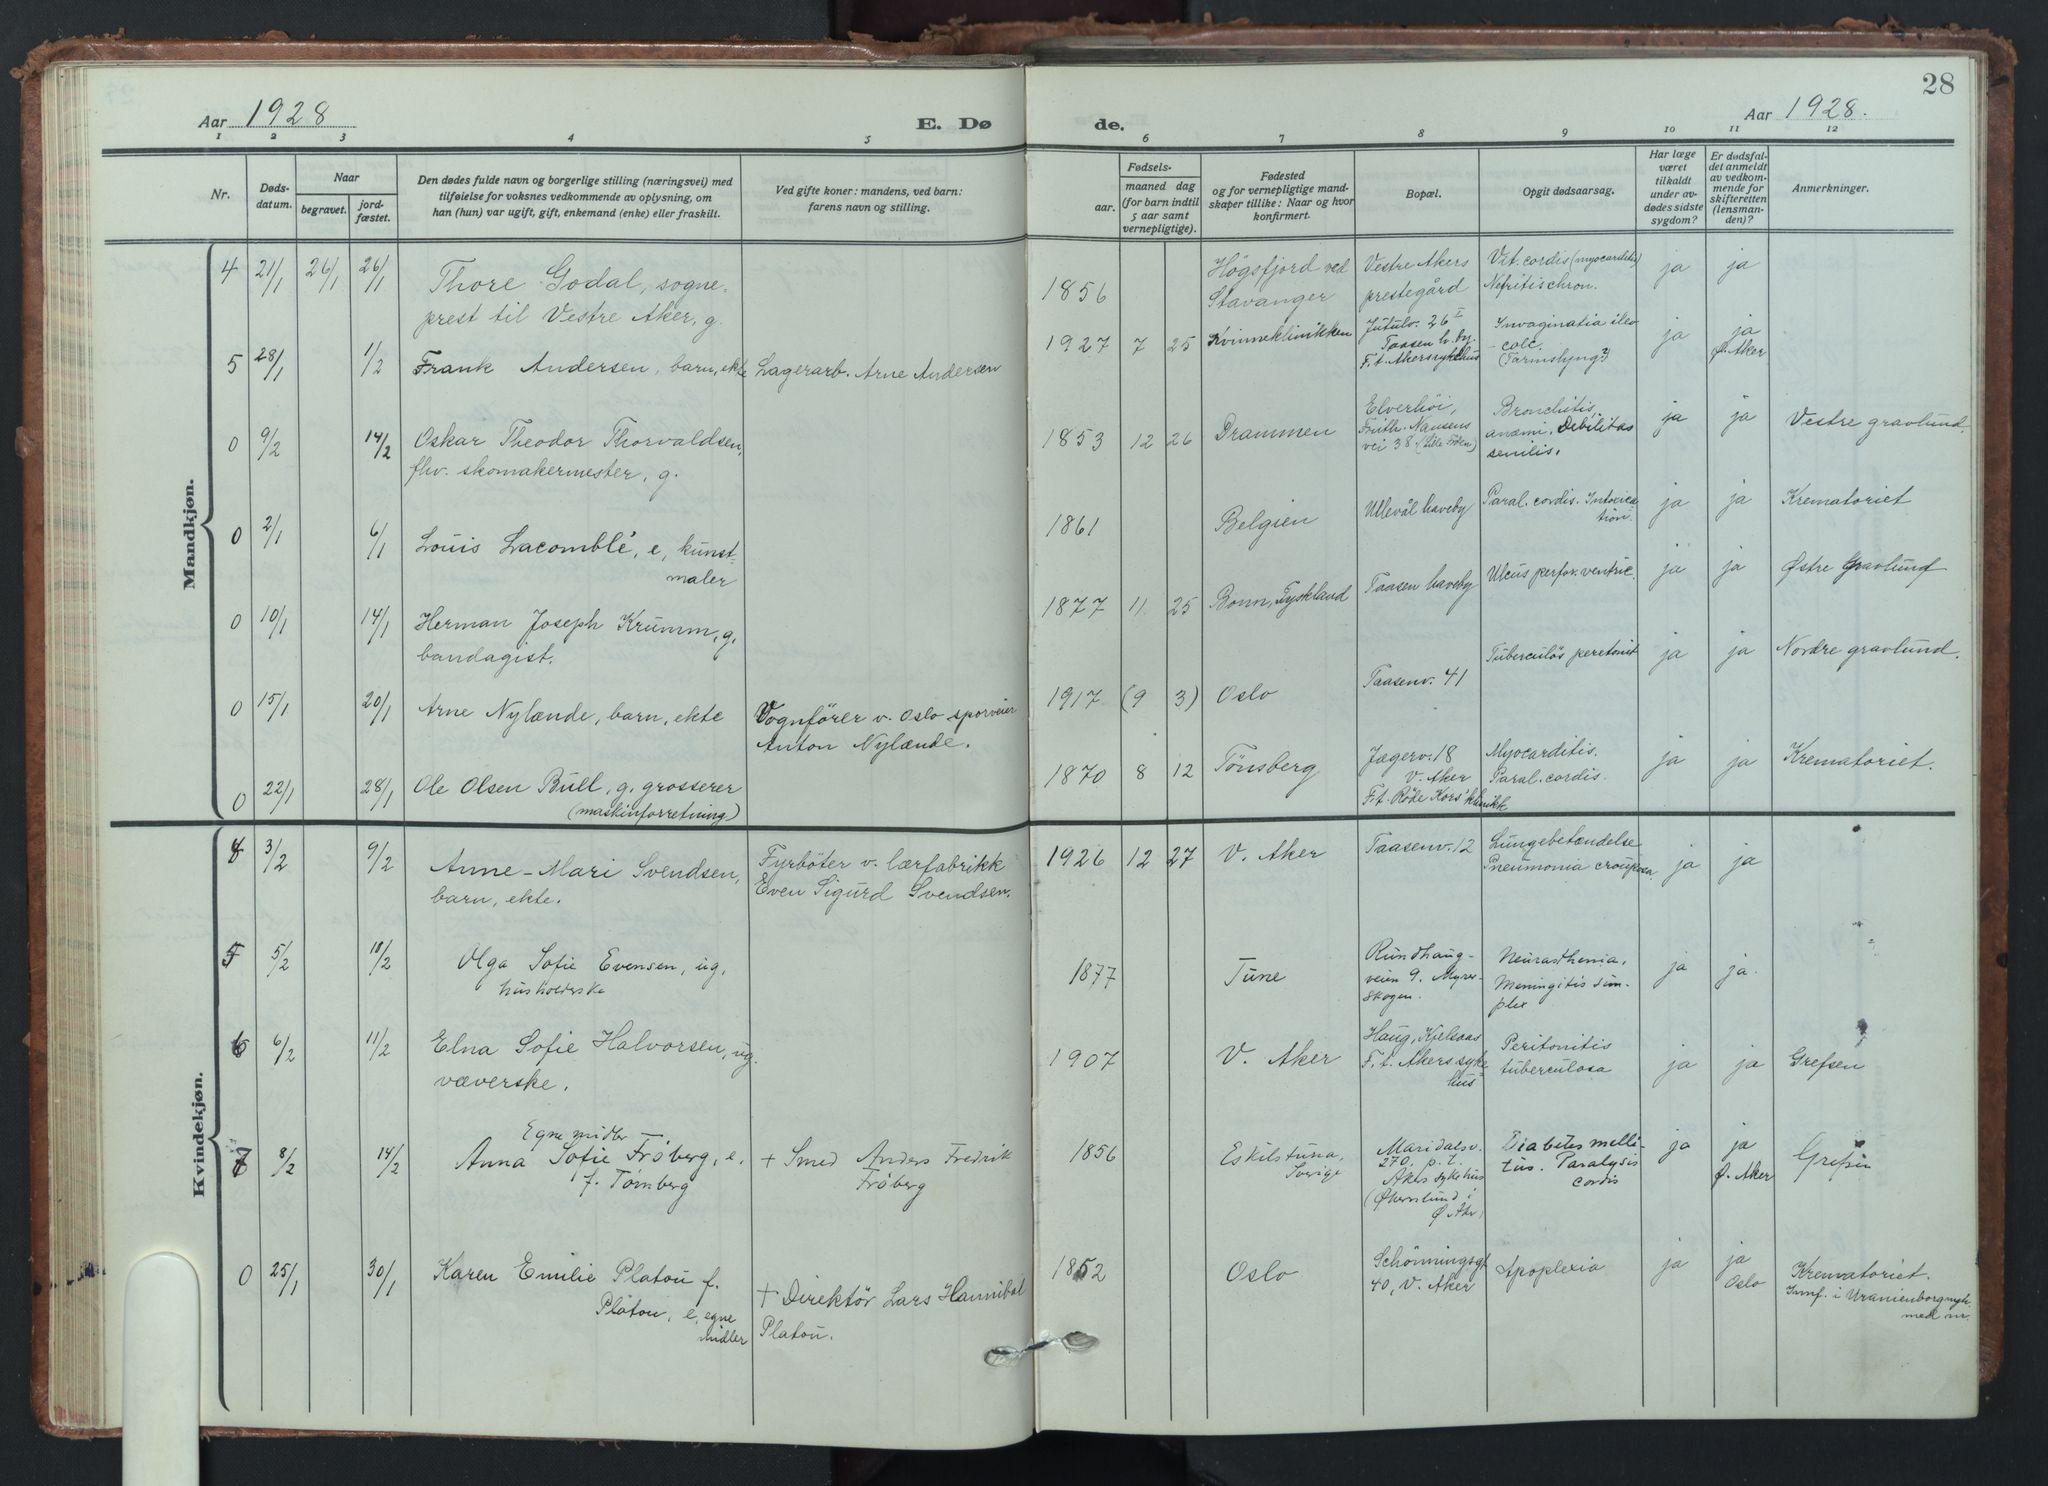 28
Aar 1928
E. Dø
de.
Aar 1928.
1 2 3 4 5
6 7 8 9 10 11 12
Nr.
Døds-
datum.
Naar
begravet.
jord-
fæstet.
Den dødes fulde navn og borgerlige stilling (næringsvei) med
tilføielse for voksnes vedkommende av oplysning, om
han (hun) var ugift, gift, enkemand (enke) eller fraskilt.
Ved gifte koner: mandens, ved barn:
farens navn og stilling.
Fødsels-
aar.
maaned dag
(for barn indtil
5 aar samt
vernepligtige).
Fødested
og for vernepligtige mand-
skaper tillike: Naar og hvor
konfirmert.
Bopæl.
Opgit dødsaarsag.
Har læge
været
tilkaldt
under av-
dødes sidste
sygdom?
Er dødsfal-
det anmeldt
av vedkom-
mende for
skifteretten
(lensman-
den)?
Anmerkninger.
Mandkjøn.
4 21/1 26/1 26/1 Thore Godal, sogne-
prest til Vestre Aker, g.
1856
Högsfjord ved
Stavanger
Vestre Akers
prestegård
Vit. cordis (myocarditis)
Nefritis chron.
ja ja
5 28/1 1/2 Frank Andersen, barn, ekte
Lagerarb. Arne Andersen
1927 7 25 Kvinneklinikken
Jutulv. 26 I
Taasen h. by.
F. t. Akers sykehus
Invaginatia ileo
-colc.
(Tarmslyng?)
ja ja
Ø. Aker
0 9/2 14/2 Oskar Theodor Thorvaldsen,
fhv. skomakermester, g.
1853 12 26 Drammen
Elverhöi,
Fridtj. Nansens
vei 38 (Lille Fröen)
Bronchitis,
anæmi. Debilitas
senilis.
ja ja Vestre gravlund.
0 2/1 6/1 Louis Lacomblé, e, kunst-
maler
1861
Belgien
Ullevål haveby
Paral. cordis. Intoxica
tion.
ja ja Krematoriet
0 10/1 14/1 Herman Joseph Krumm, g.
bandagist.
1877 11 25 Bonn, Tyskland
Taasen haveby
Ulcus perfor. ventric.
ja ja Østre Gravlund
0 15/1 20/1 Arne Nylænde, barn, ekte
Vognförer v. Oslo sporveier
Anton Nylænde.
1917 (9 3) Oslo
Taasenv. 41
Tuberculös peretonit
ja ja Nordre gravlund.
0 22/1 28/1 Ole Olsen Bull, g. grosserer
(maskinforretning)
1870 8 12 Tönsberg
Jægerv. 18
V. Aker
F. t. Röde Kors' klinikk
Myocarditis.
Paral. cordis.
ja ja Krematoriet.
Kvindekjøn.
3/2 9/2 Anne-Mari Svendsen,
barn, ekte.
Fyrböter v. lærfabrikk
Even Sigurd Svendsen.
1926 12 27 V. Aker
Taasenv. 12
Lungebetændelse
Pneumonia crouposa
ja ja
5 5/2 10/2 Olga Sofie Evensen, ug,
husholderske
1877
Tune
Rundhaug-
veien 9. Myrer-
skogen.
Neurasthenia.
Meningitis sim-
plex
ja ja.
6 6/2 11/2 Elna Sofie Halvorsen, ug.
væverske.
1907
V. Aker
Haug, Kjelsaas
F. t. Akers syke
hus
Peritonitis
tuberculosa
ja ja Grefsen
7 8/2 14/2 Egne midler
Anna Sofie Fröberg, e,
f. Törnberg
+ Smed Anders Fredrik
Fröberg
1856
Eskilstuna,
Sverige
Maridalsv.
270, p. t.
Akers sykehus
(Økernlund i
Ø. Aker)
Diabetes melli-
tus. Paralysis
cordis
ja ja
Ø. Aker
Grefsen
0 25/1 30/1 Karen Emilie Platou f.
Platou, e, egne
midler
+ Direktör Lars Hannibal
Platou.
1852
Oslo
Schönningsgt.
40, V. Aker
Apoplexia
ja ja
Oslo
Krematoriet.
Innf. i Uranienborg
med nr.